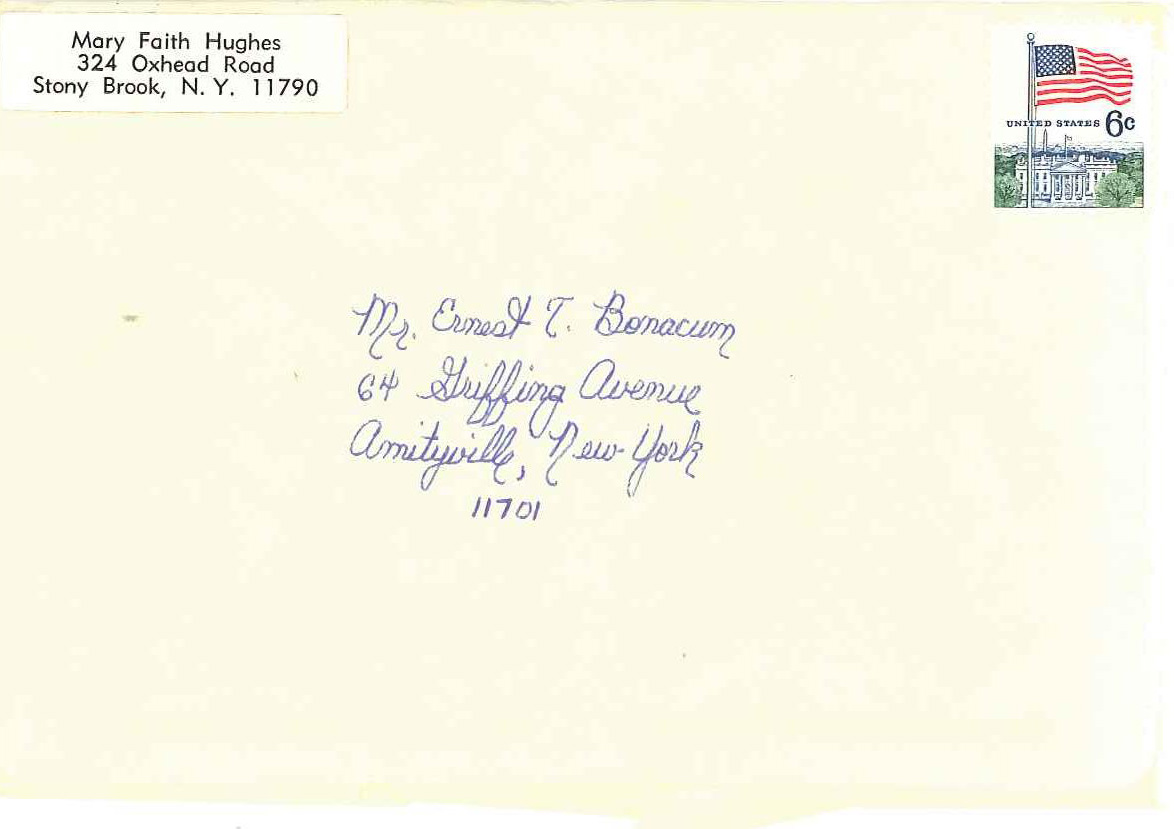 Mary Faith Hughes
324 Oxhead Road
Stony Brook, N. Y. 11790
UNITED STATES 6c
Mr. Ernest T. Bonacum
64 Griffing Avenue
Amityville, New York
11701